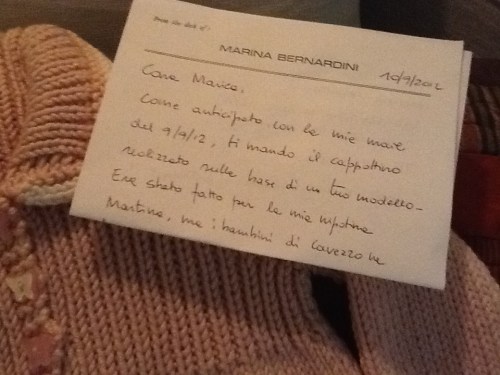 From the desk of:
MARINA BERNARDINI
10/9/2012
Cara Marica,
Come anticipato con la mia mail
del 9/9/12, ti mando il cappottino
realizzato sulla base di un tuo modello.
Era stato fatto per la mia nipotina
Martina, ma i bambini di Cavezzo ne